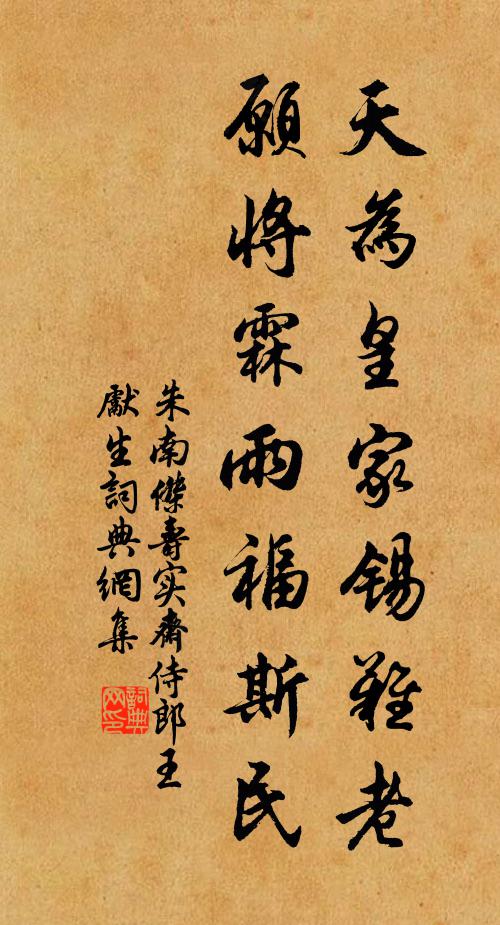 天為皇家錫難老
願將霖雨福斯民
朱南傑壽实齋侍郎王
獻生詞典網集
詞典
网印